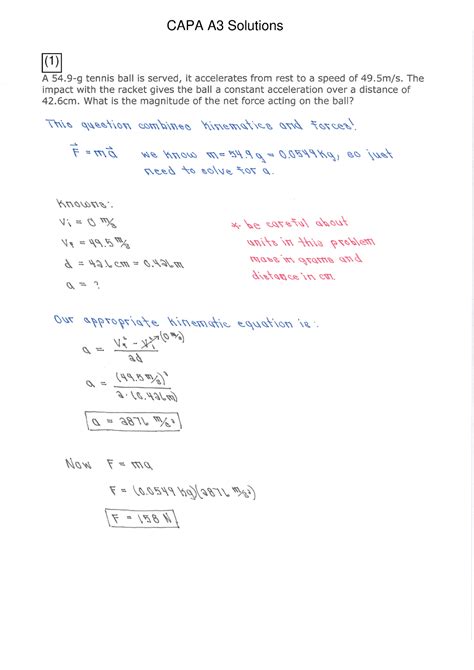 CAPA A3 Solutions
(1)
A 54.9-g tennis ball is served, it accelerates from rest to a speed of 49.5m/s. The
impact with the racket gives the ball a constant acceleration over a distance of
42.6cm. What is the magnitude of the net force acting on the ball?
This question combines kinematics and forces!
F⃗ = ma⃗ we know m = 54.9g = 0.0549 kg, so just
need to solve for a.
Knowns:
Vi = 0 m/s
Vf = 49.5 m/s
d = 42.6 cm = 0.426m
a = ?
* be careful about
units in this problem
mass in grams and
distance in cm.
Our appropriate kinematic equation is:
a = (Vf² - Vi²)/2d (0 m/s)
a = (49.5 m/s)²/2·(0.426m)
a = 2876 m/s²
Now F = ma
F = (0.0549 kg)(2876 m/s²)
F = 158 N